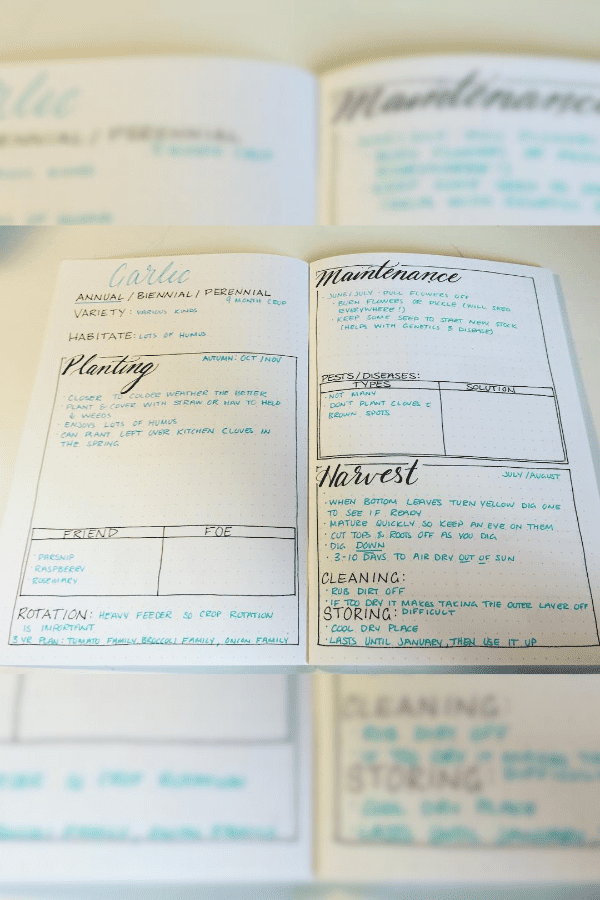 Garlic
ANNUAL / BIENNIAL / PERENNIAL
9 MONTH CROP
VARIETY: VARIOUS KINDS
HABITATE: LOTS OF HUMUS
Planting
AUTUMN: OCT / NOV
· CLOSER TO COLDER WEATHER THE BETTER
· PLANT & COVER WITH STRAW OR HAY TO HELP
& WEEDS
· ENJOYS LOTS OF HUMUS
· CAN PLANT LEFT OVER KITCHEN CLOVES IN
THE SPRING
FRIEND
FOE
· PARSNIP
· RASPBERRY
· ROSEMARY
ROTATION: HEAVY FEEDER SO CROP ROTATION
IS IMPORTANT
3 YR PLAN: TOMATO FAMILY, BROCCOLI FAMILY, ONION FAMILY
Maintenance
JUNE/JULY: PULL FLOWERS OFF
· BURN FLOWERS OR PICKLE (WILL SEED
EVERYWHERE!)
· KEEP SOME SEED TO START NEW STOCK
(HELPS WITH GENETICS & DISEASE)
PESTS/DISEASES:
TYPES
SOLUTION
· NOT MANY
· DON'T PLANT CLOVES
BROWN SPOTS
Harvest
JULY/AUGUST
· WHEN BOTTOM LEAVES TURN YELLOW DIG ONE
TO SEE IF READY
· MATURE QUICKLY SO KEEP AN EYE ON THEM
· CUT TOPS & ROOTS OFF AS YOU DIG
· DIG DOWN
· 3-10 DAYS TO AIR DRY OUT OF SUN
CLEANING:
· RUB DIRT OFF
· IF TOO DRY IT MAKES TAKING THE OUTER LAYER OFF
DIFFICULT
STORING:
· COOL DRY PLACE
· LASTS UNTIL JANUARY, THEN USE IT UP